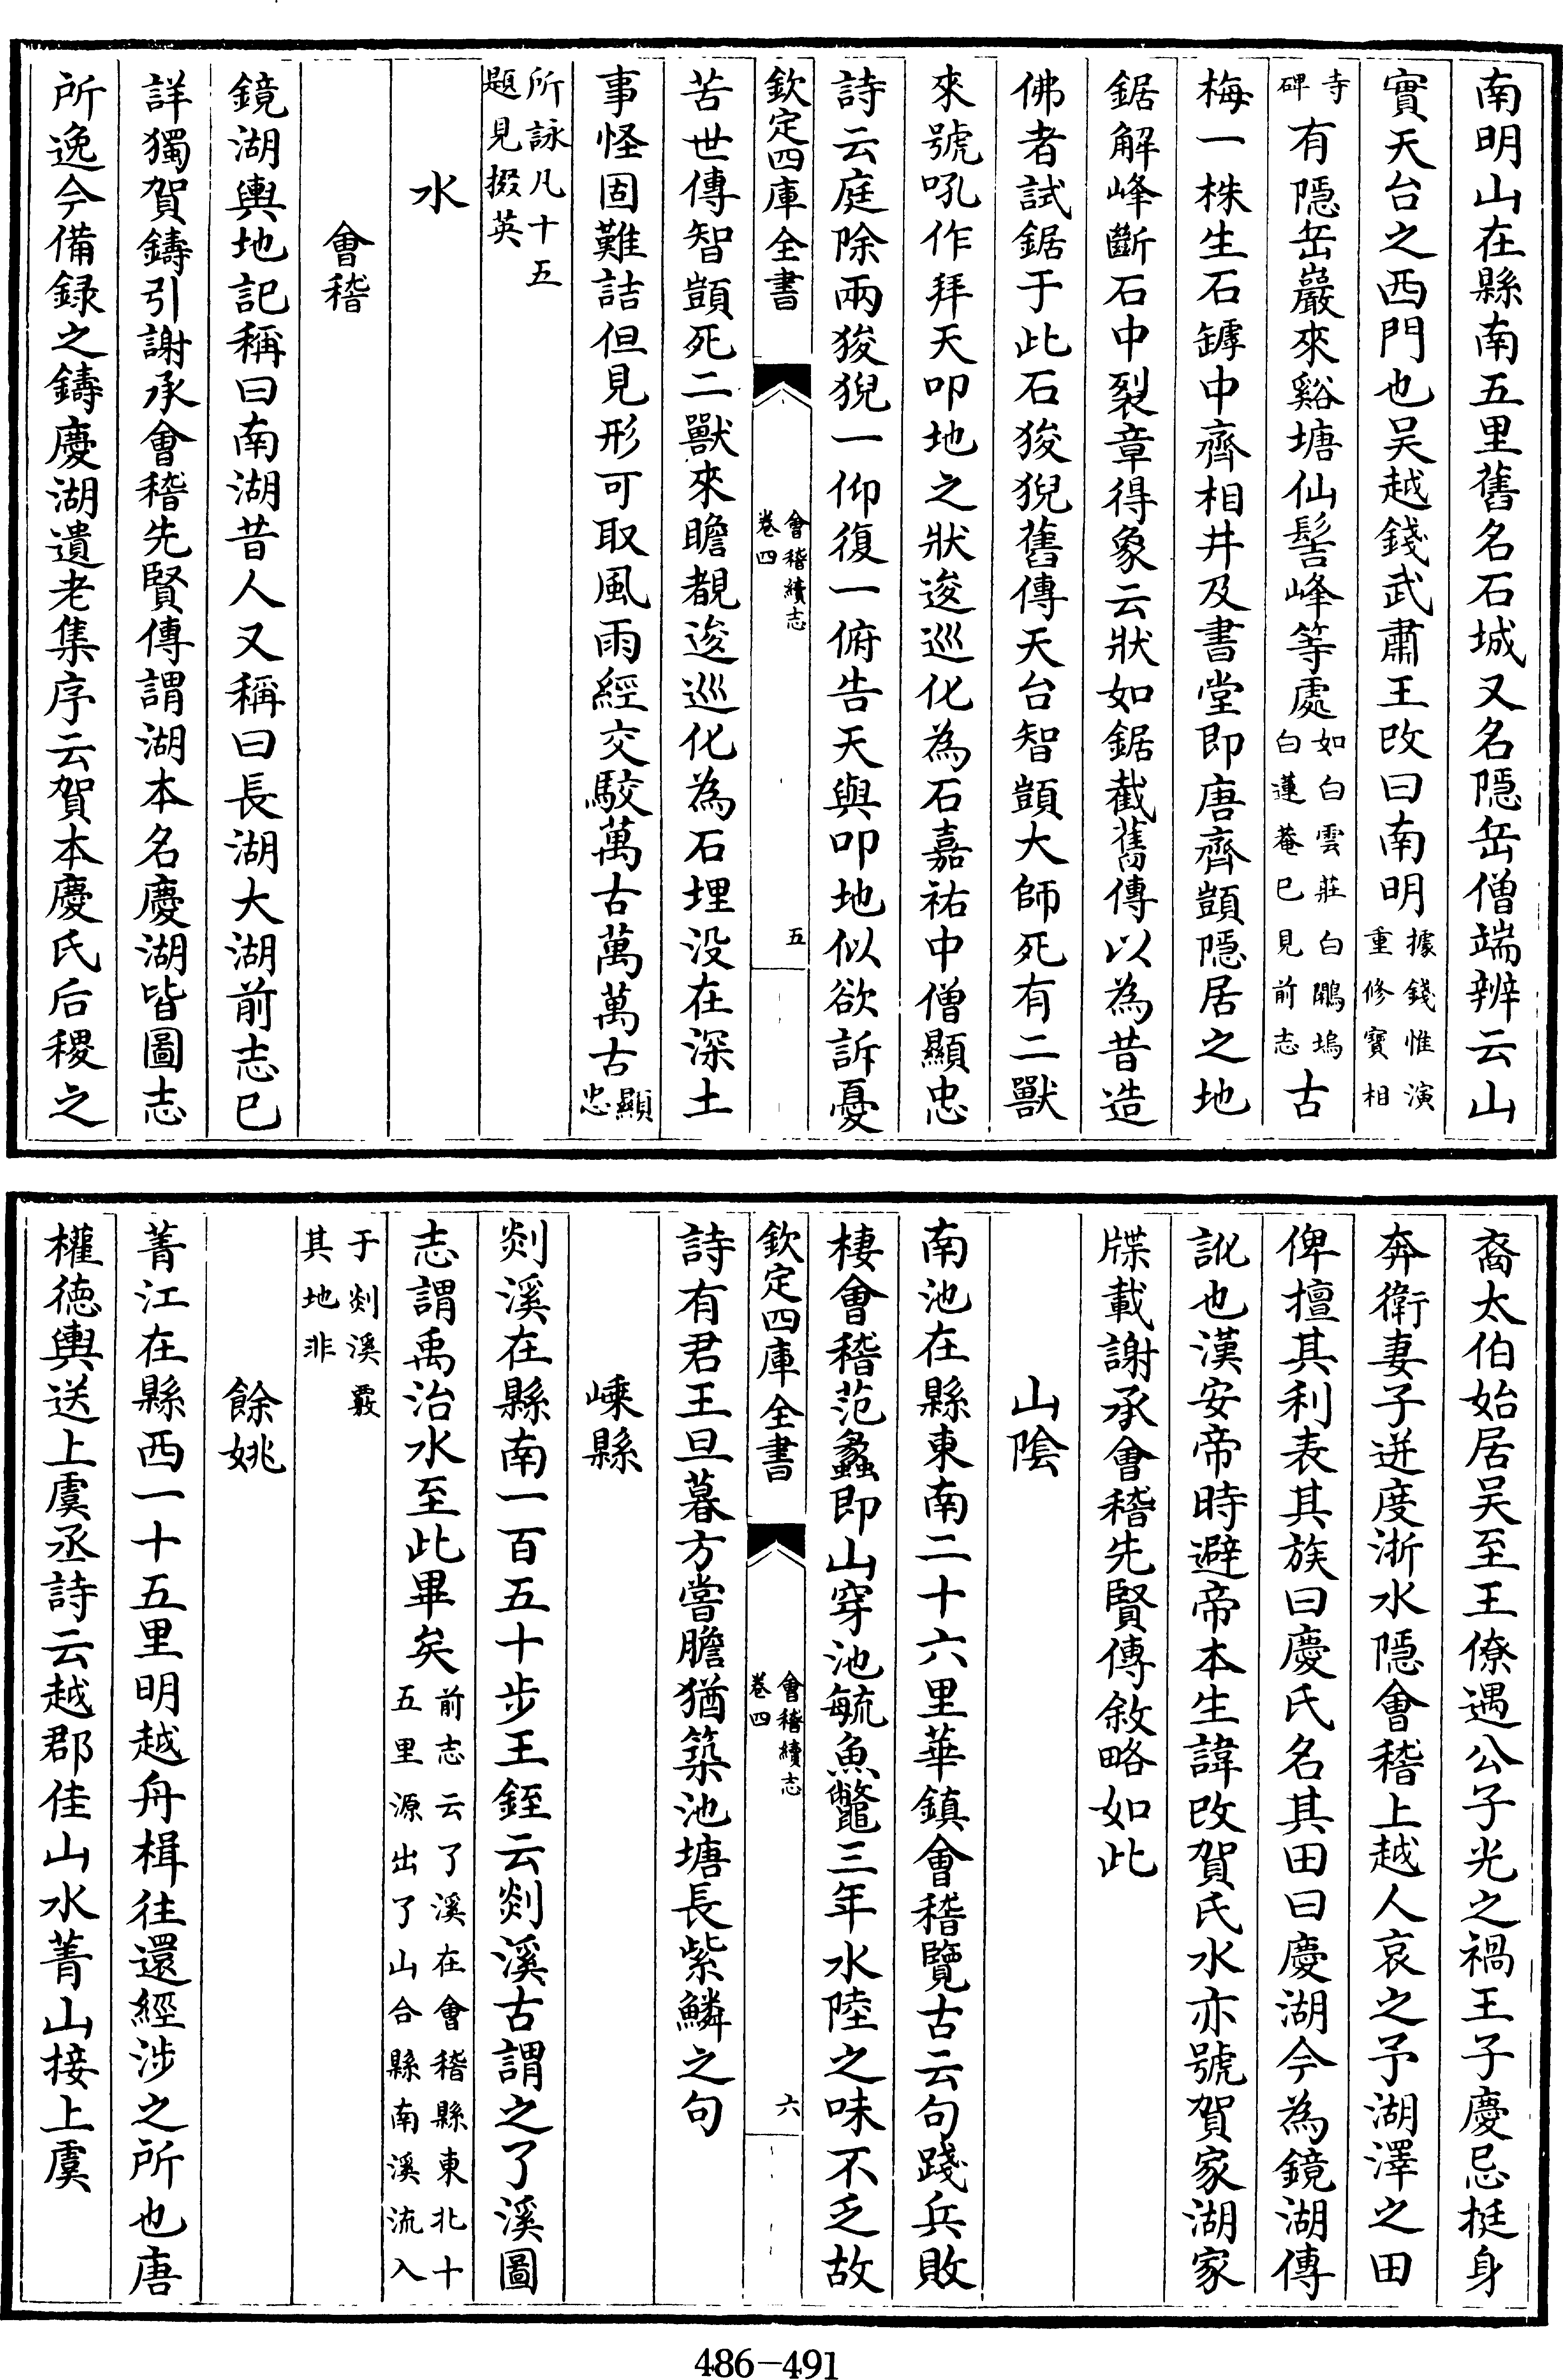 南明山在縣南五里舊名石城又名隠岳僧端辨云山
實天台之西門也吴越錢武肅王改曰南明據錢惟演重修寳相
寺碑有隠岳巖來谿塘仙髻峰等處如白雲莊白鷴塢白蓮菴已見前志古
梅一株生石罅中齊相井及書堂即唐齊顗隠居之地
鋸解峰斷石中裂章得象云狀如鋸截舊傳以為昔造
佛者試鋸于此石狻猊舊傳天台智顗大師死有二獸
來號吼作拜天叩地之狀逡巡化為石嘉祐中僧顯忠
詩云庭除兩狻猊一仰復一俯告天與叩地似欲訴憂
欽定四庫全書
會稽續志
卷四
五
苦世傳智顗死二獸來瞻覩逡巡化為石埋没在深土
事怪固難詰但見形可取風雨經交駮萬古萬萬古顯忠
所詠凡十五題見掇英
水
會稽
鏡湖輿地記稱曰南湖昔人又稱曰長湖大湖前志已
詳獨賀鑄引謝承會稽先賢傳謂湖本名慶湖皆圖志
所逸今備録之鑄慶湖遺老集序云賀本慶氏后稷之
裔太伯始居吴至王僚遇公子光之禍王子慶忌挺身
奔衛妻子迸度浙水隠會稽上越人哀之予湖澤之田
俾擅其利表其族曰慶氏名其田曰慶湖今為鏡湖傳
訛也漢安帝時避帝本生諱改賀氏水亦號賀家湖家
牒載謝承會稽先賢傳敘略如此
山陰
南池在縣東南二十六里華鎮會稽覽古云句踐兵敗
棲會稽范蠡即山穿池毓魚鼈三年水陸之味不乏故
欽定四庫全書
會稽續志
卷四
六
詩有君王旦暮方嘗膽猶築池塘長紫鱗之句
嵊縣
剡溪在縣南一百五十步王銍云剡溪古謂之了溪圖
志謂禹治水至此畢矣前志云了溪在會稽縣東北十五里源出了山合縣南溪流入
于剡溪覈其地非
餘姚
菁江在縣西一十五里明越舟楫往還經涉之所也唐
權徳輿送上虞丞詩云越郡佳山水菁山接上虞
486-491